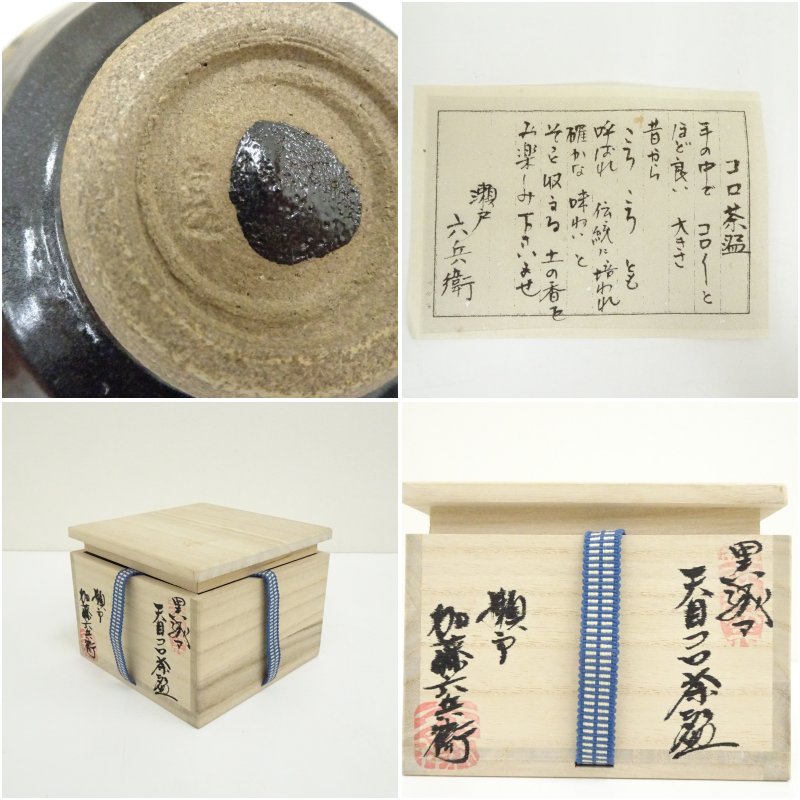 コロ茶盌
手の中で コロ〱と
ほど良い 大きさ
昔から
ころ ころ とも
呼ばれ 伝統に培われ
確かな 味わいと
そっと収まる 土の香を
お楽しみ下さいませ
瀬戸
六兵衛
天目コロ茶盌
瀬戸
加藤六兵衛
天目コロ茶盌
瀬戸
加藤六兵衛